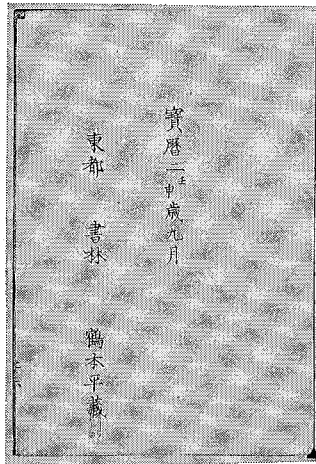 寶曆二壬申歳九月
東都 書林 鶴本平藏